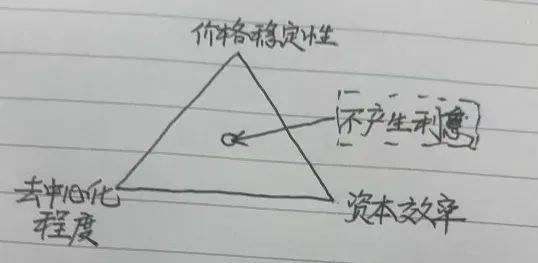 价格稳定性
不产生利息
去中心化
程度
资本效率